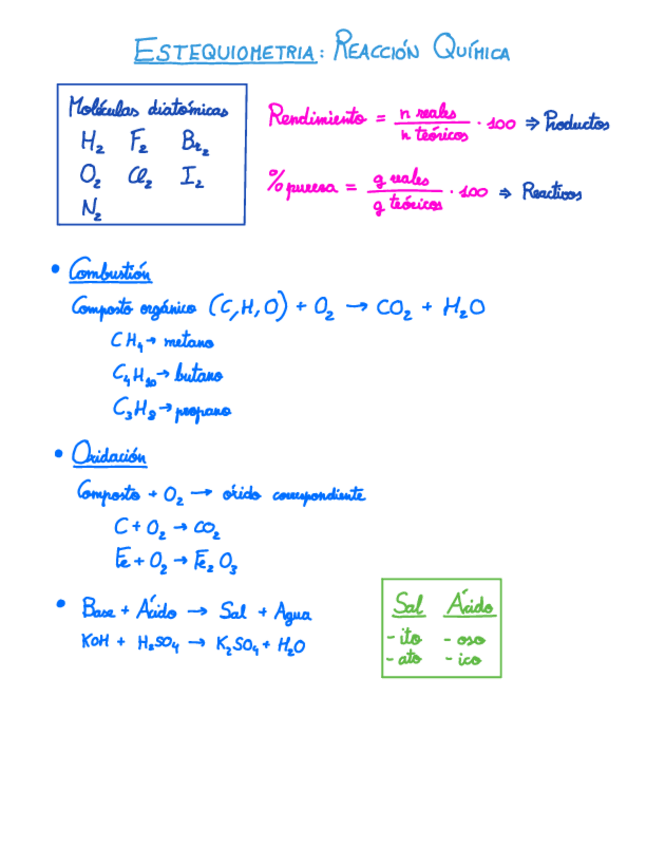 ESTEQUIOMETRIA: REACCIÓN QUÍMICA
Moléculas diatómicas
H₂ F₂ Br₂
O₂ Cl₂ I₂
N₂
Rendimiento = n reales / n teóricos · 100 ⇒ Productos
% pureza = g reales / g teóricos · 100 ⇒ Reactivos
• Combustión
Composto orgánico (C,H,O) + O₂ → CO₂ + H₂O
CH₄ → metano
C₄H₁₀ → butano
C₃H₈ → propano
• Oxidación
Composto + O₂ → óxido correspondiente
C + O₂ → CO₂
Fe + O₂ → Fe₂O₃
• Base + Ácido → Sal + Agua
KOH + H₂SO₄ → K₂SO₄ + H₂O
Sal Ácido
- ito - oso
- ato - ico